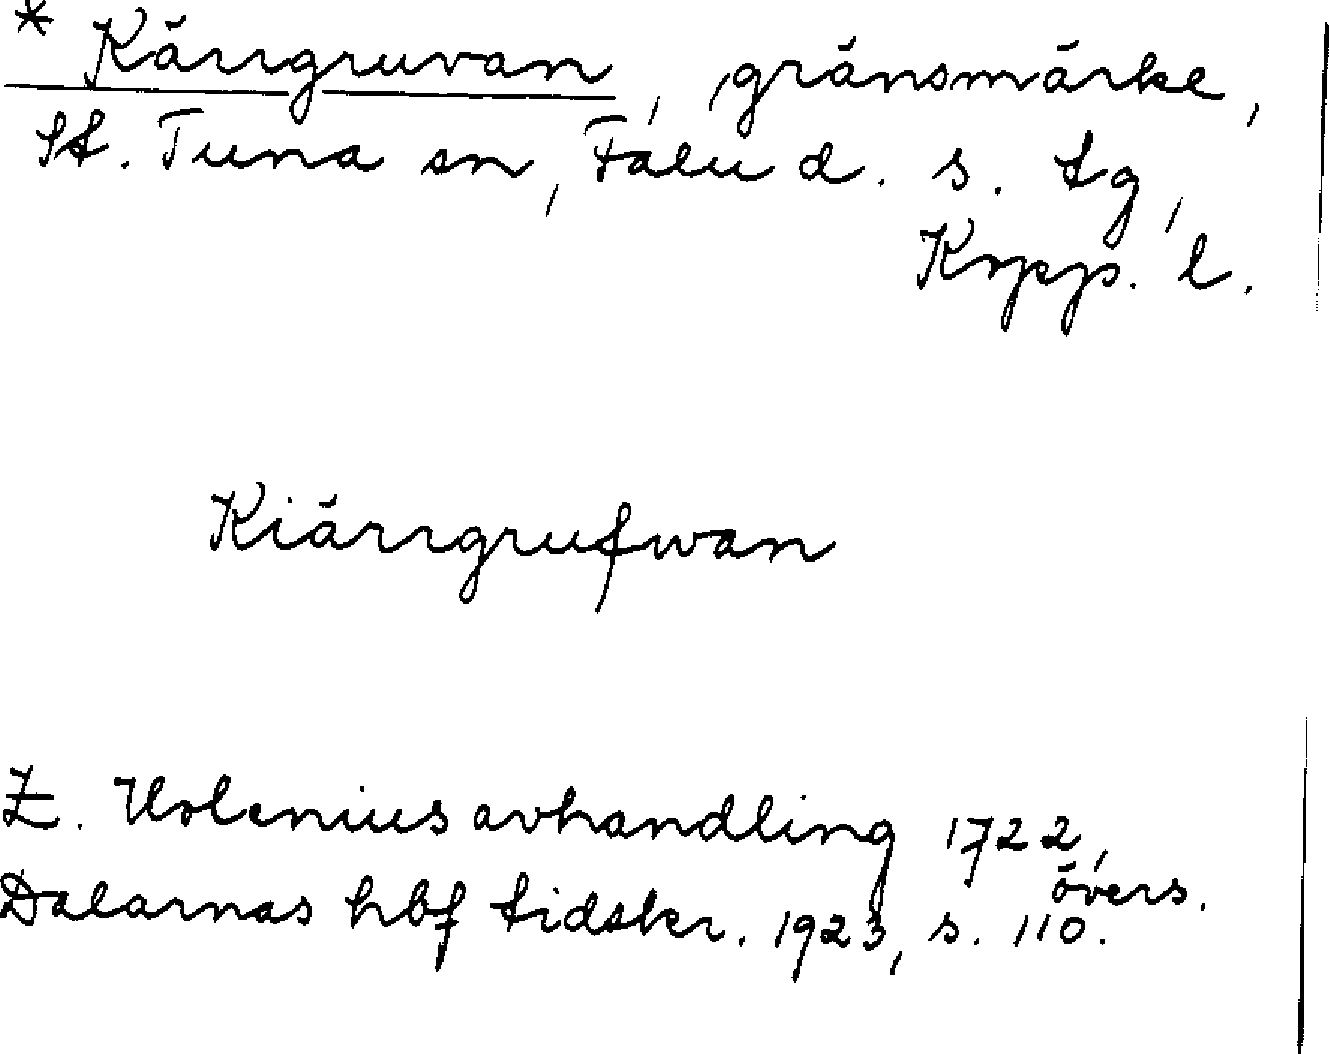 * Kärrgruvan, gränsmärke,
St. Tuna sn, Falu d. s. tg,
Kopp. l.
Kiärrgrufwan
E. Holenius avhandling 1722,
övers.
Dalarnas hbf tidskr. 1923, s. 110.